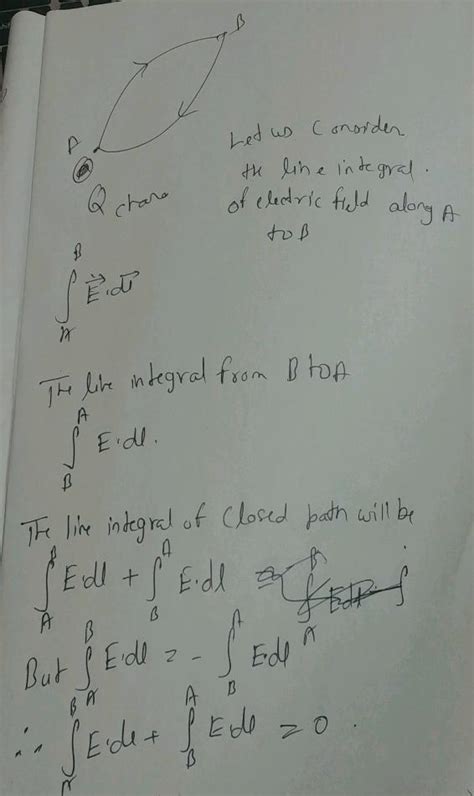 B
A
Q charge
Let us Consider
the line integral.
of electric field along A
to B
∫_A^B E⃗.dl⃗
The line integral from B to A
∫_B^A E.dl.
The line integral of Closed path will be
∫_A^B E.dl + ∫_B^A E.dl
But ∫_A^B E.dl = - ∫_B^A E.dl
∴ ∫_A^B E.dl + ∫_B^A E.dl = 0.